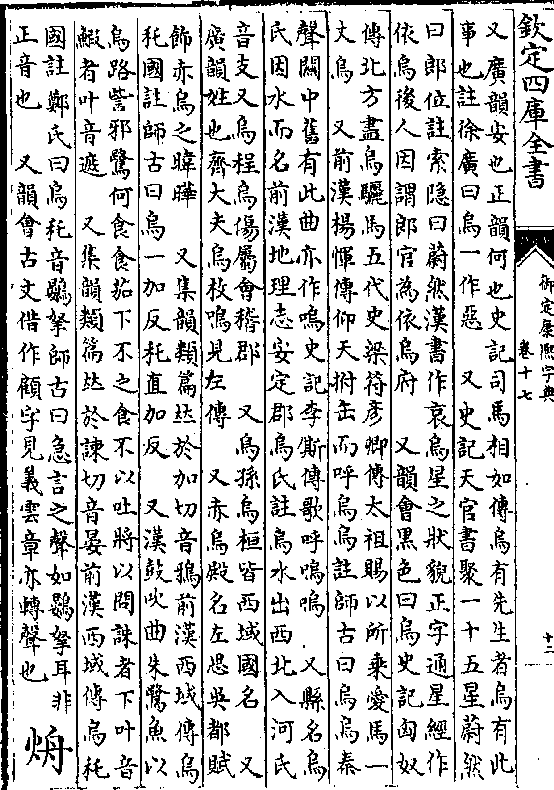 欽定四庫全書
御定康熙字典
卷十七
十二
又廣韻安也正韻何也史記司馬相如傳烏有先生者烏有此
事也註徐廣曰烏一作惡　又史記天官書聚一十五星蔚然
曰郎位註索隱曰蔚然漢書作哀烏星之狀貌正字通星經作
依烏後人因謂郎官為依烏府　又韻會黑色曰烏史記匈奴
傳北方盡烏驪馬五代史梁符彥卿傳太祖賜以所乗愛馬一
丈烏　又前漢楊惲傳仰天拊缶而呼烏烏註師古曰烏烏秦
聲關中舊有此曲亦作嗚史記李斯傳歌呼嗚嗚　又縣名烏
氏因水而名前漢地理志安定郡烏氏註烏水出西北入河氏
音支又烏程烏傷屬會稽郡　又烏孫烏桓皆西域國名　又
廣韻姓也齊大夫烏枚鳴見左傳　又赤烏殿名左思吳都賦
飾赤烏之暐曄　又集韻類篇𠀤於加切音鴉前漢西域傳烏
秅國註師古曰烏一加反秅直加反　又漢鼓吹曲朱鷺魚以
烏路訾邪鷺何食食茄下不之食不以吐將以問誅者下叶音
鰕者叶音遮　又集韻類篇𠀤於諫切音晏前漢西域傳烏秅
國註鄭氏曰烏秅音鷃拏師古曰急言之聲如鷃拏耳非
正音也　又韻會古文借作顧字見義雲章亦轉聲也
炿